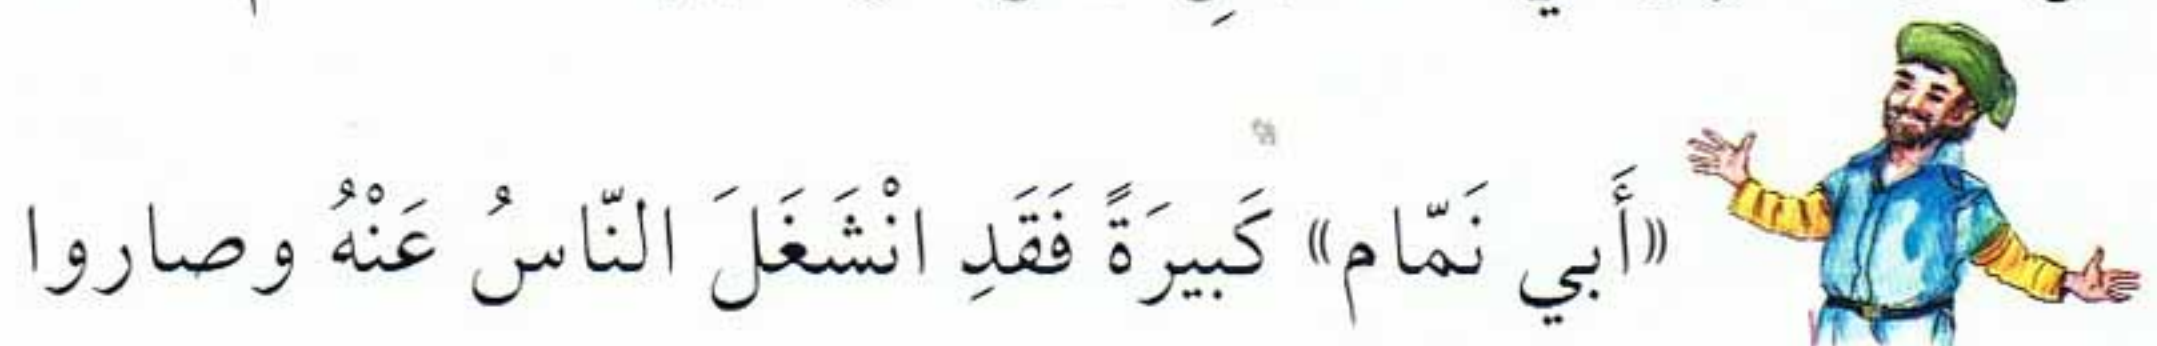 «أَبي نَمّام» كَبيرَةً فَقَدِ انْشَغَلَ النّاسُ عَنْهُ وصاروا